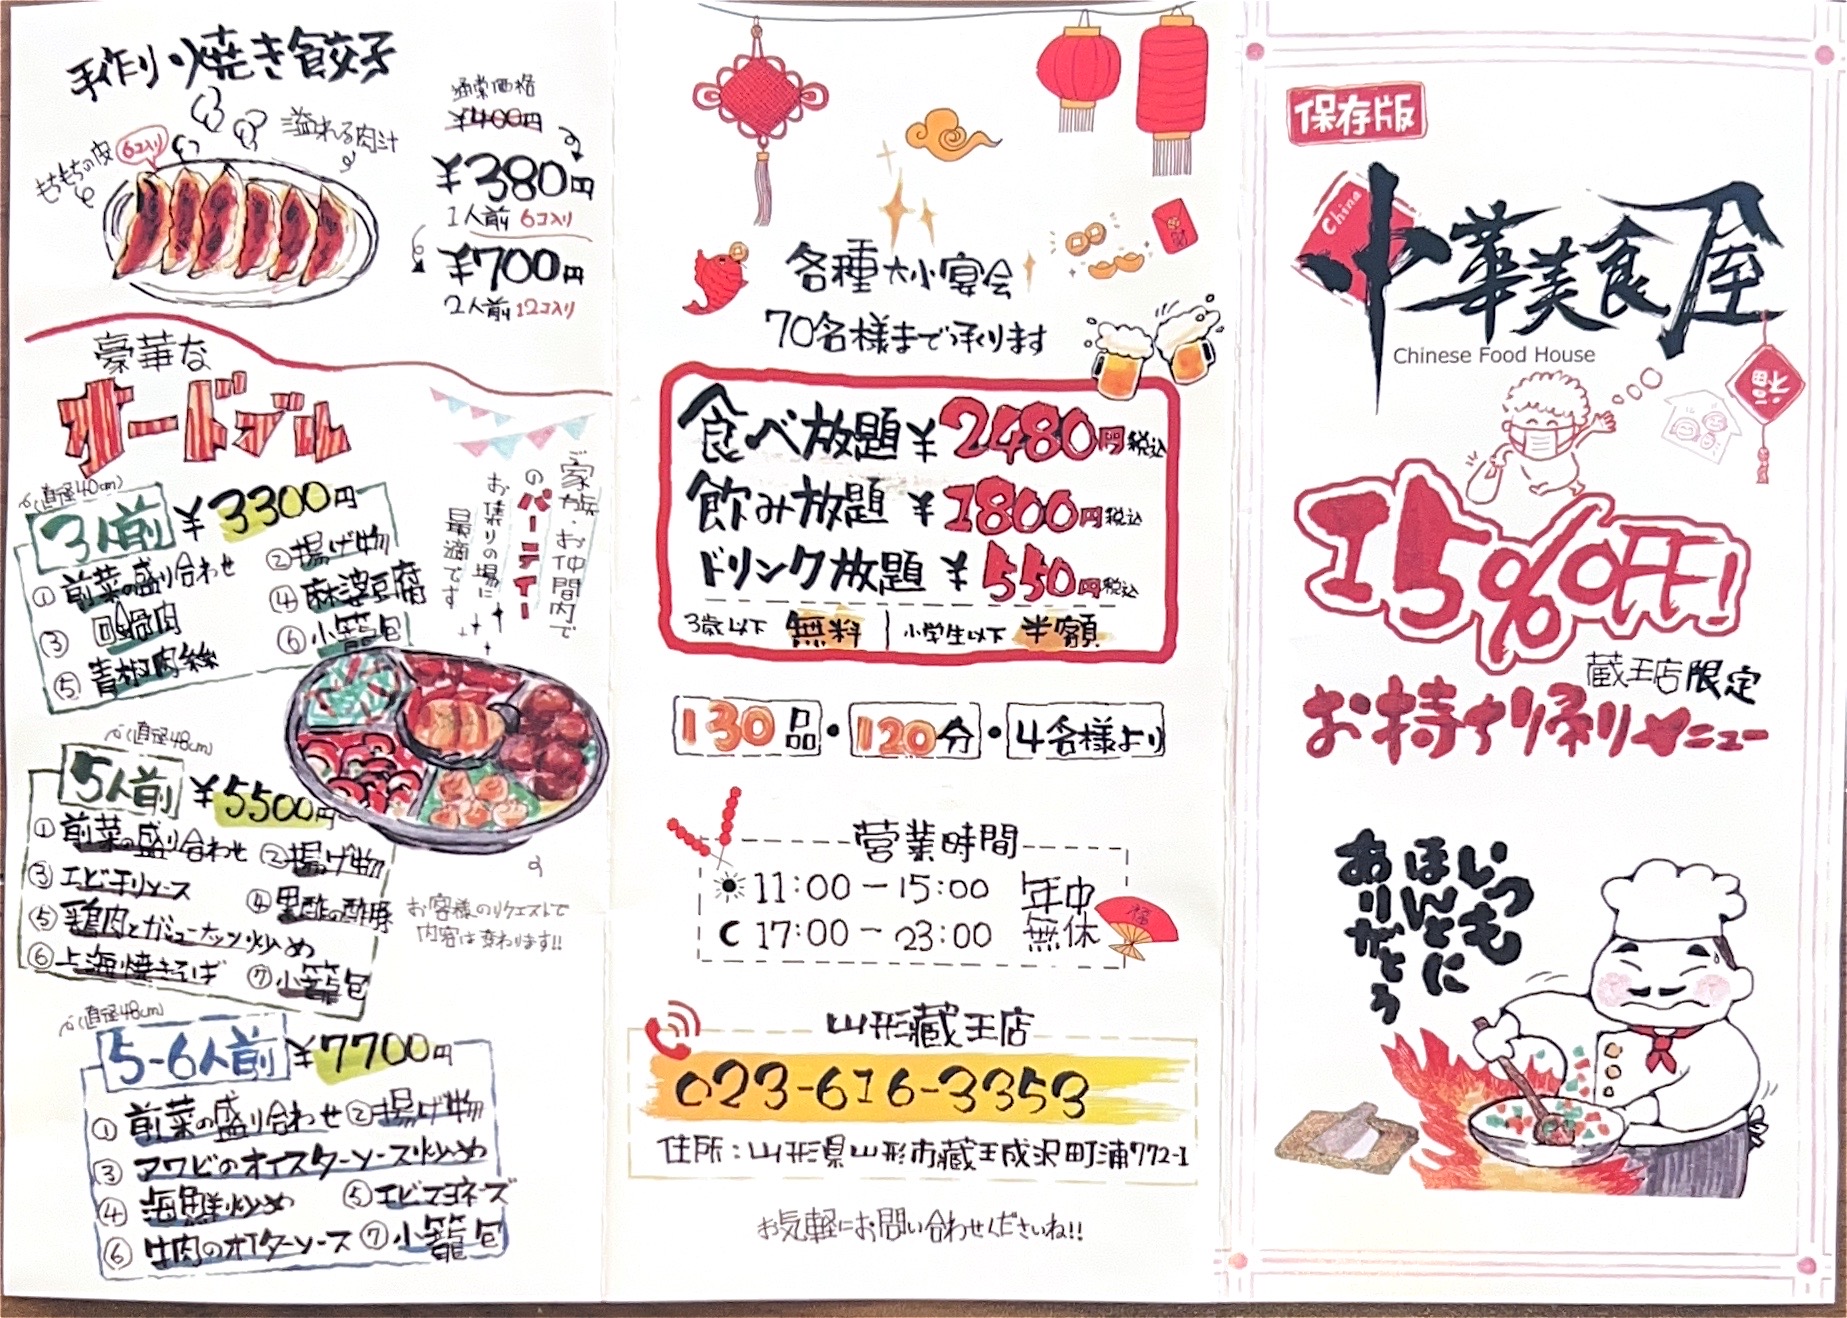 手作り焼き餃子
もちもちの皮
6コ入り
溢れる肉汁
通常価格
¥400円
¥380円
1人前 6コ入り
¥700円
2人前 12コ入り
豪華な
オードブル
ご家族・お仲間内で
のパーティー
お集りの場に
最適です
(直径40cm)
3人前 ¥3300円
①前菜の盛り合わせ ②揚げ物
③回鍋肉 ④麻婆豆腐
⑤青椒肉絲 ⑥小籠包
(直径48cm)
5人前 ¥5500円
①前菜の盛り合わせ ②揚げ物
③エビチリソース ④黒酢の酢豚
⑤鶏肉とカシューナッツ炒め
⑥上海焼きそば ⑦小籠包
お客様のリクエストで
内容は変わります!!
(直径48cm)
5-6人前 ¥7700円
①前菜の盛り合わせ ②揚げ物
③アワビのオイスターソース炒め
④海鮮炒め ⑤エビマヨネーズ
⑥牛肉のオイスターソース ⑦小籠包
各種大小宴会
70名様まで承ります
食べ放題 ¥2480円税込
飲み放題 ¥1800円税込
ドリンク放題 ¥550円税込
3歳以下 無料 | 小学生以下 半額
130品・120分・4名様より
営業時間
11:00-15:00 年中
17:00-23:00 無休
福
山形蔵王店
023-616-3353
住所:山形県山形市蔵王成沢町浦772-1
お気軽にお問い合わせくださいね!!
保存版
China
中華美食屋
Chinese Food House
福
15%OFF!
蔵王店限定
お持ち帰りメニュー
いつも
ほんとに
ありがとう